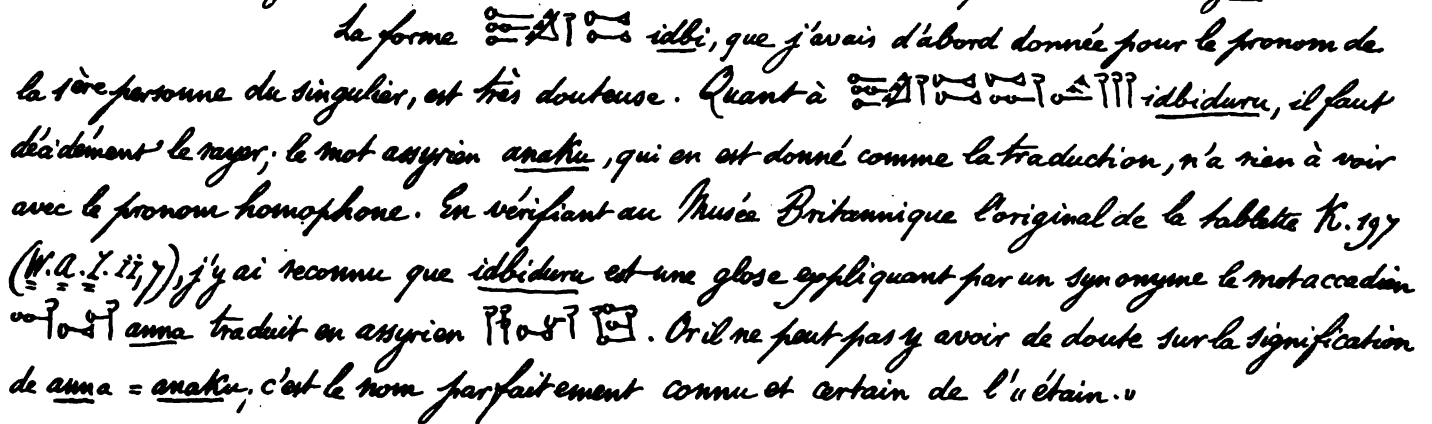 La forme idbi, que j'avais d'abord donnée pour le pronom de
la 1ère personne du singulier, est très douteuse. Quant à idbiduru, il faut
décidément le rayer; le mot assyrien anaku, qui en est donné comme la traduction, n'a rien à voir
avec le pronom homophone. En vérifiant au Musée Britannique l'original de la tablette K. 197
(W. A. I. ii, 7), j'y ai reconnu que idbiduru est une glose expliquant par un synonyme le mot accadien
anna traduit en assyrien . Or il ne peut pas y avoir de doute sur la signification
de anna = anaku; c'est le nom parfaitement connu et certain de l'« étain. »